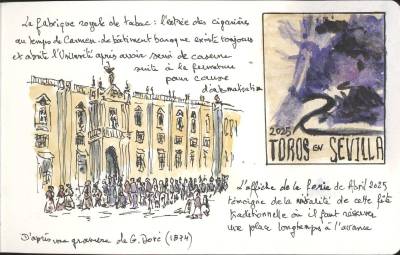 La fabrique royale de tabac : l'entrée des cigarières
au temps de Carmen. Le bâtiment baroque existe toujours
et abrite l'Université après avoir servi de caserne
suite à la fermeture
pour cause
d'automatisation
2025
TOROS EN SEVILLA
L'affiche de la feria de Abril 2025
témoigne de la vitalité de cette fête
traditionnelle où il faut réserver
une place longtemps à l'avance
D'après une gravure de G. Doré (1874)